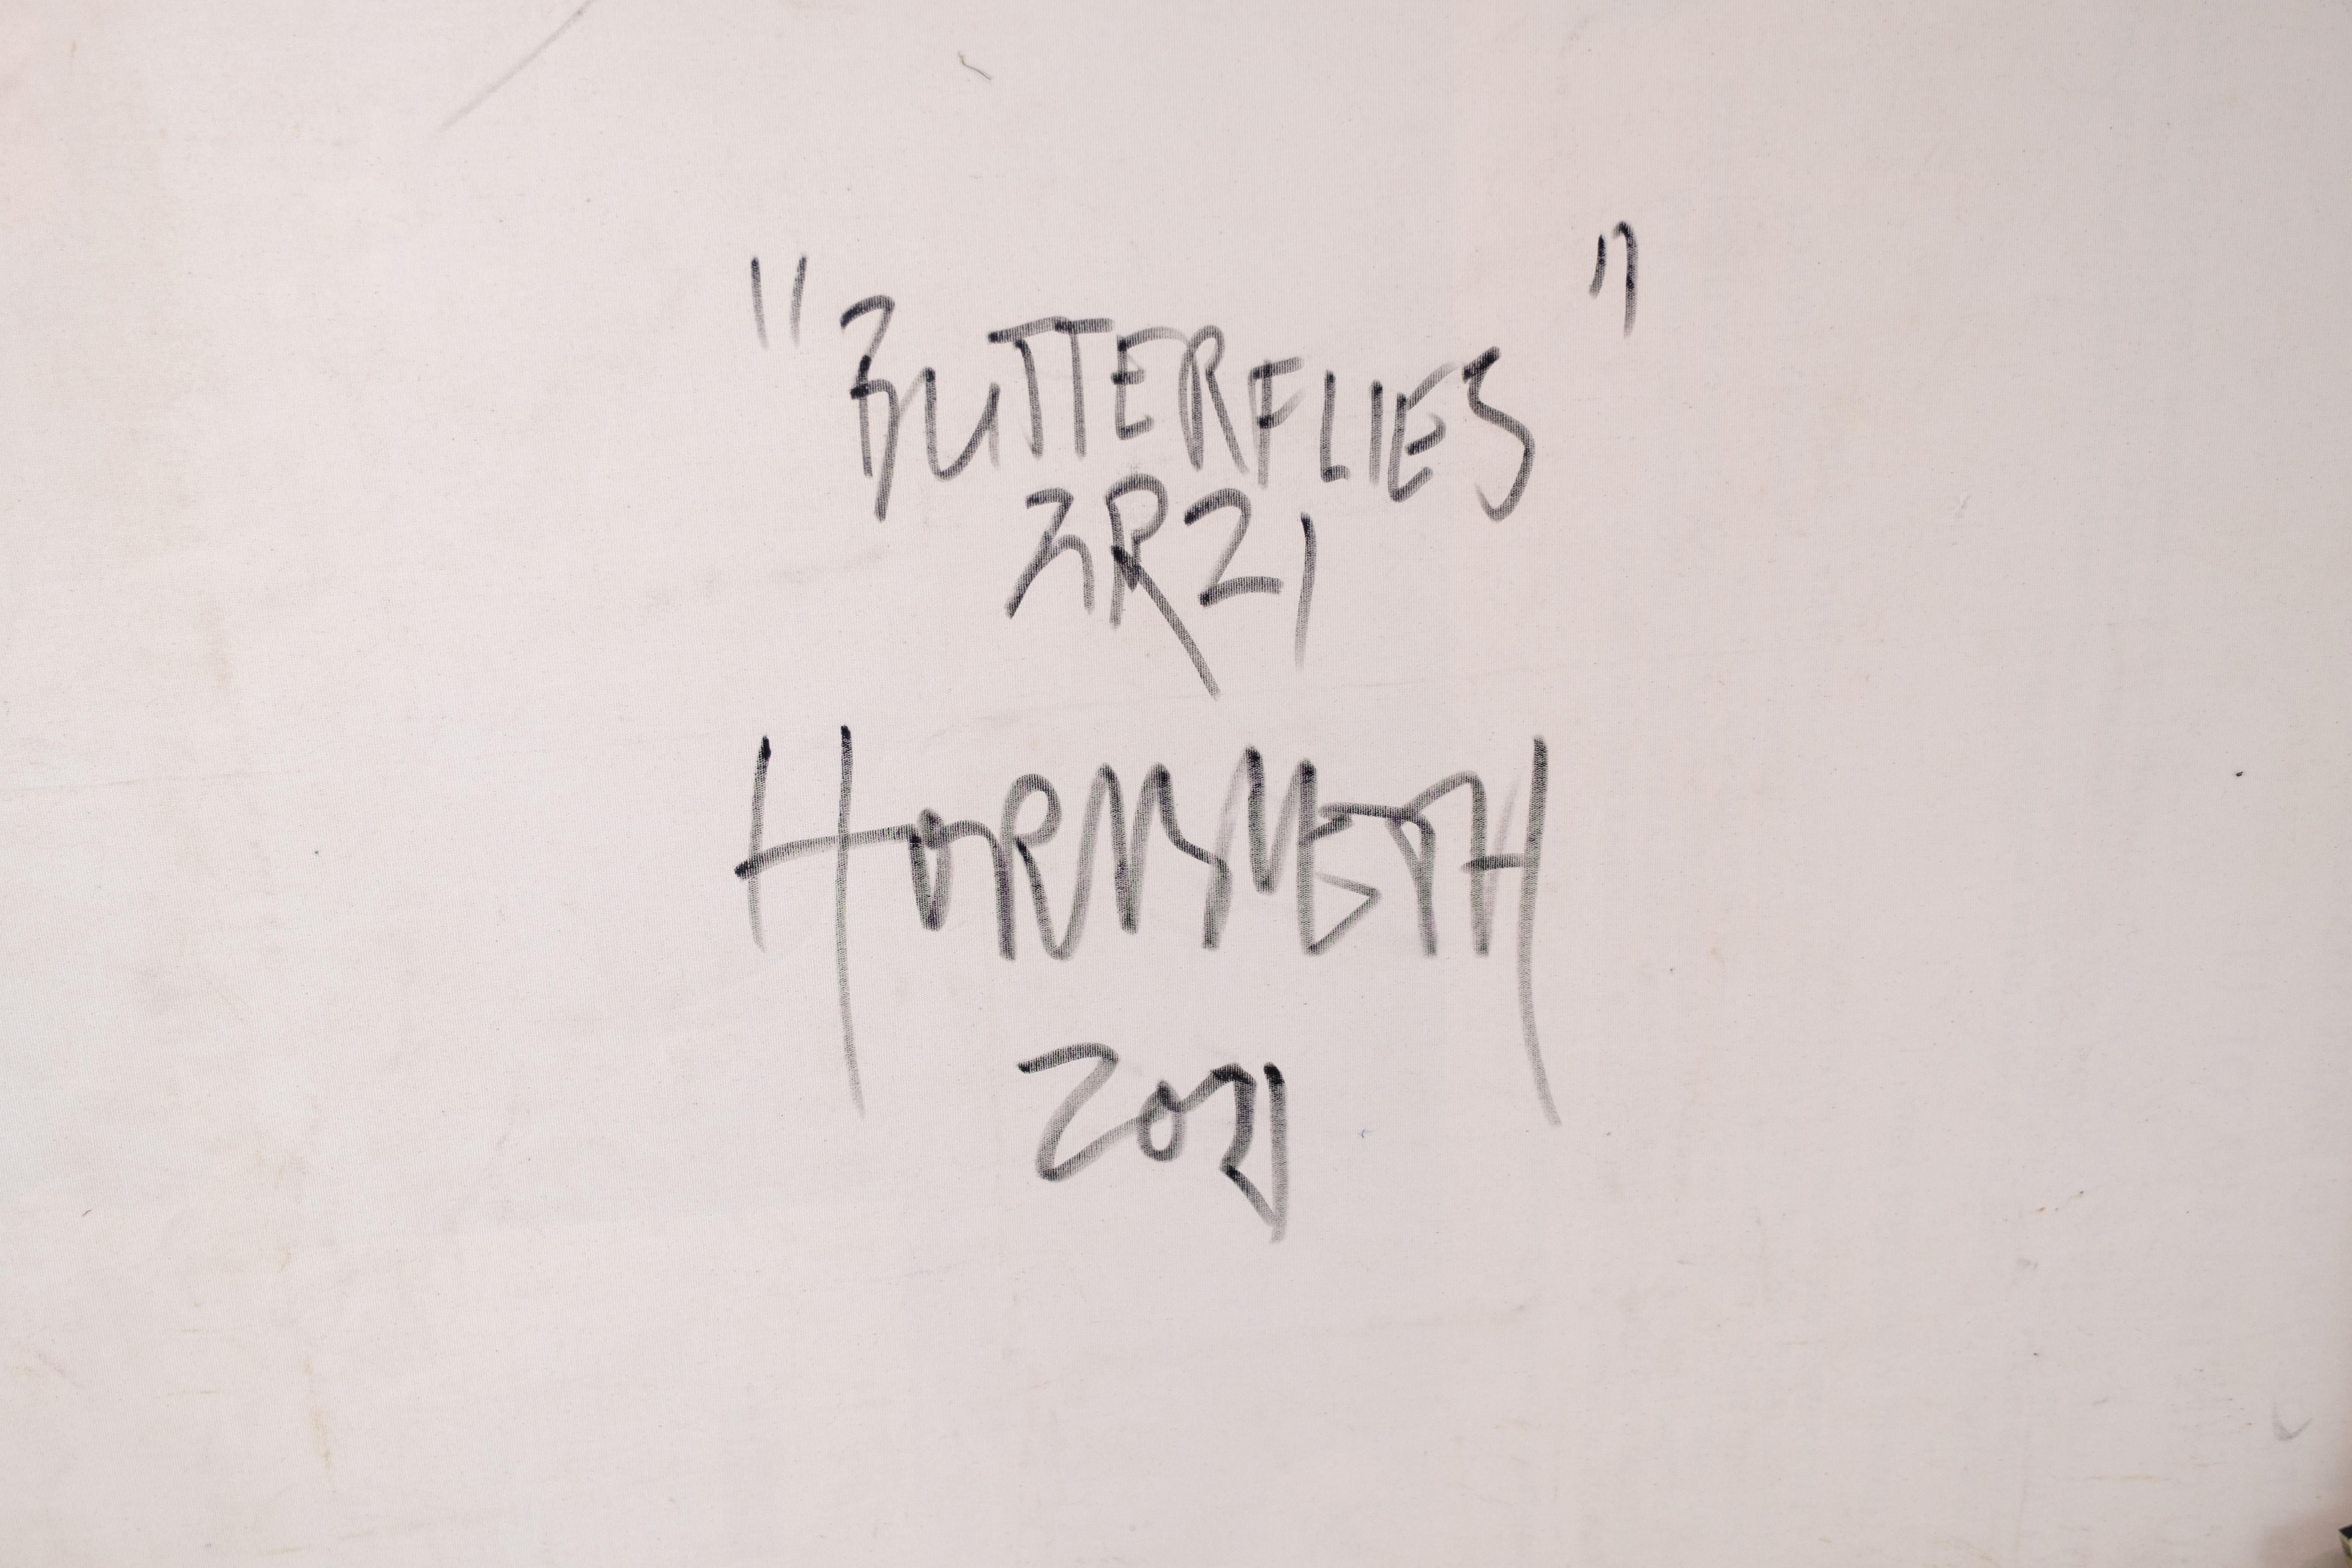 "BUTTERFLIES"
3R21
HORNSVETH
2021